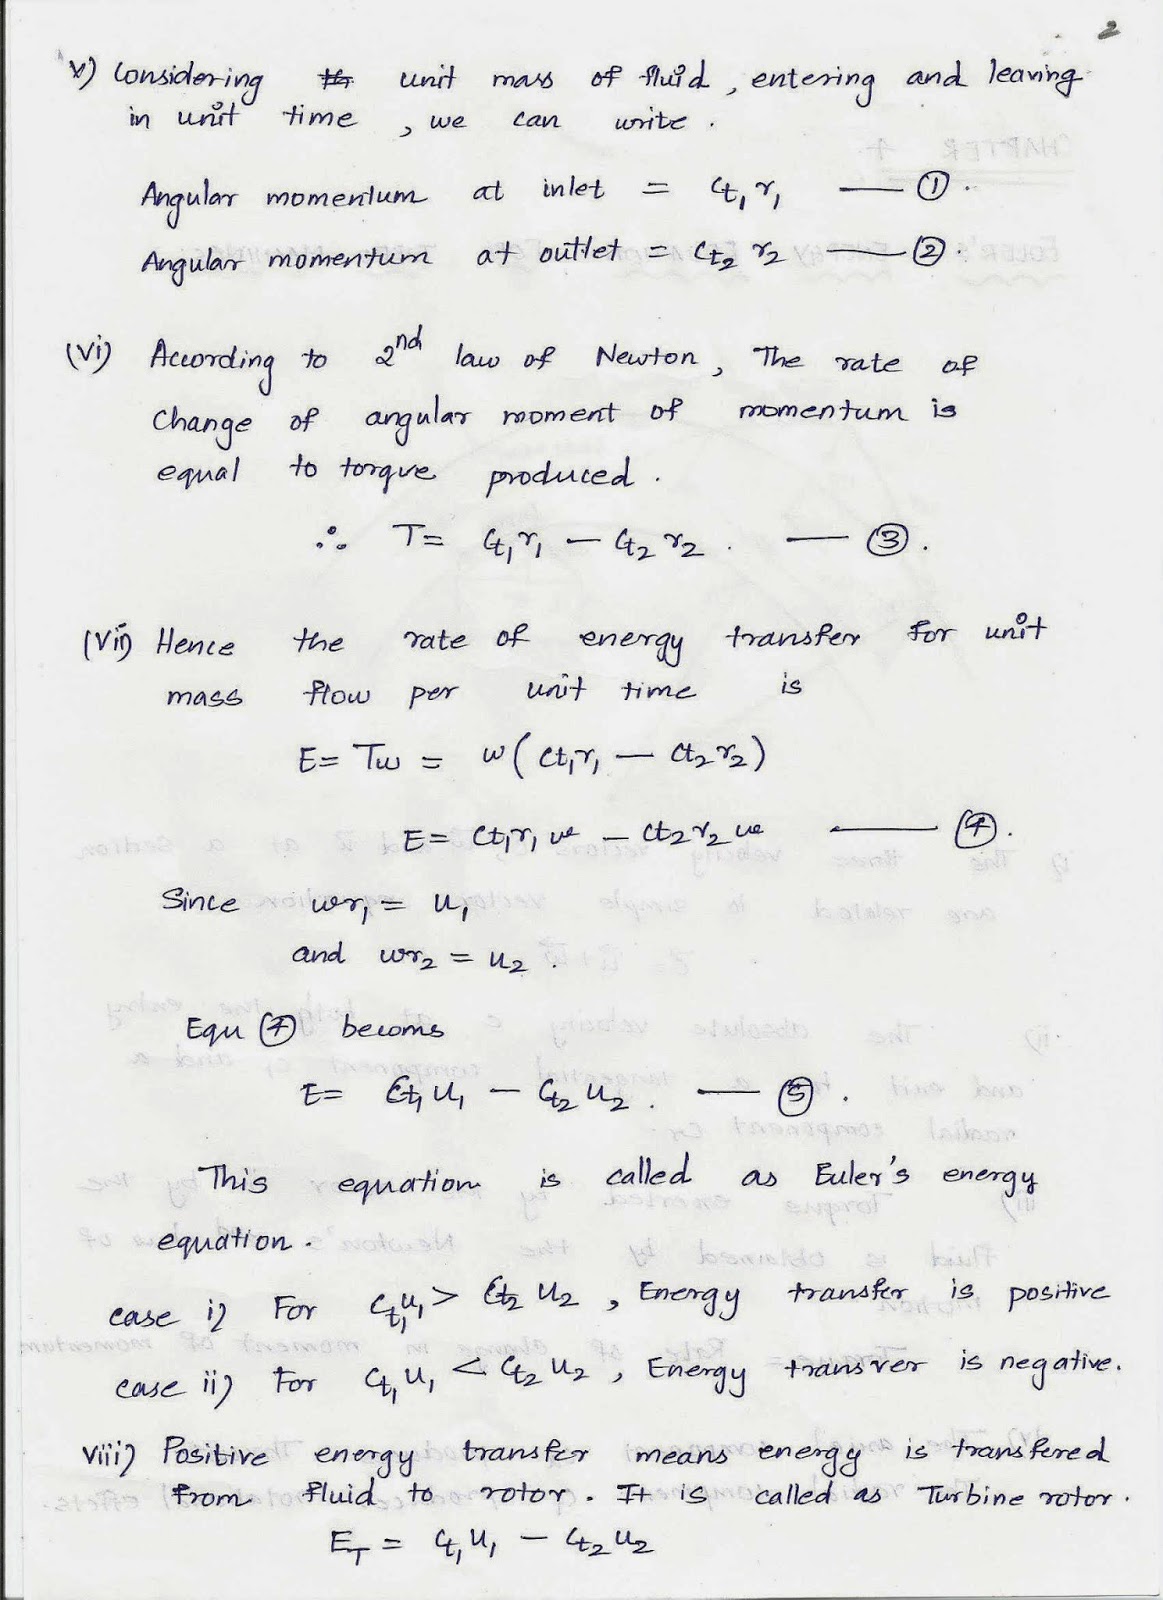 2
v) Considering unit mass of fluid, entering and leaving
in unit time, we can write.
Angular momentum at inlet = Ct₁ r₁ — ①.
Angular momentum at outlet = Ct₂ r₂ — ②.
(vi) According to 2nd law of Newton, The rate of
change of angular moment of momentum is
equal to torque produced.
∴ T = Ct₁r₁ − Ct₂ r₂. — ③.
(vii) Hence the rate of energy transfer for unit
mass flow per unit time is
E = Tω = ω(Ct₁r₁ − Ct₂r₂)
E = Ct₁r₁ω − Ct₂r₂ω — ④.
Since ωr₁ = u₁
and ωr₂ = u₂.
Equ ④ becoms
E = Ct₁u₁ − Ct₂u₂. — ⑤.
This equation is called as Euler's energy
equation.
case i) For Ct₁u₁ > Ct₂u₂, Energy transfer is positive
case ii) For Ct₁u₁ < Ct₂u₂, Energy transver is negative.
viii) Positive energy transfer means energy is transfered
from fluid to rotor. It is called as Turbine rotor.
E_T = Ct₁u₁ − Ct₂u₂